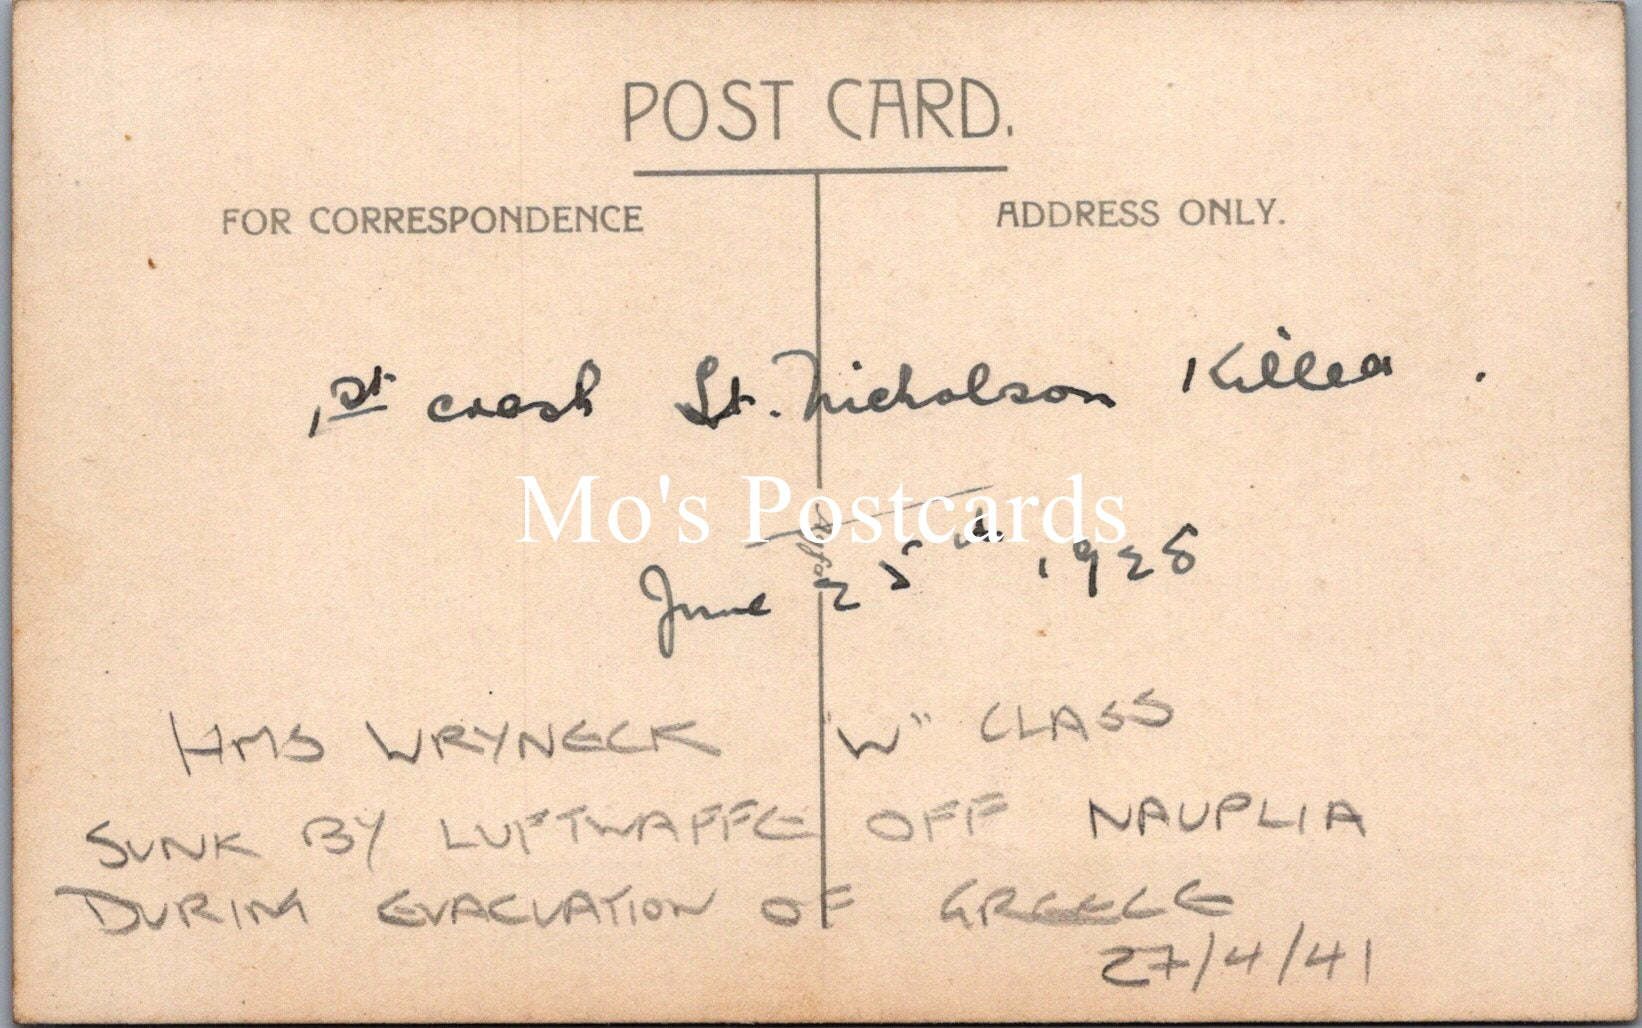 POST CARD.
FOR CORRESPONDENCE
ADDRESS ONLY.
1st crash Lt. Nicholson Killed.
Mo's Postcards
June 25th, 1928
HMS WRYNECK "W" CLASS
SUNK BY LUFTWAFFE OFF NAUPLIA
DURING EVACUATION OF GREECE
27/4/41